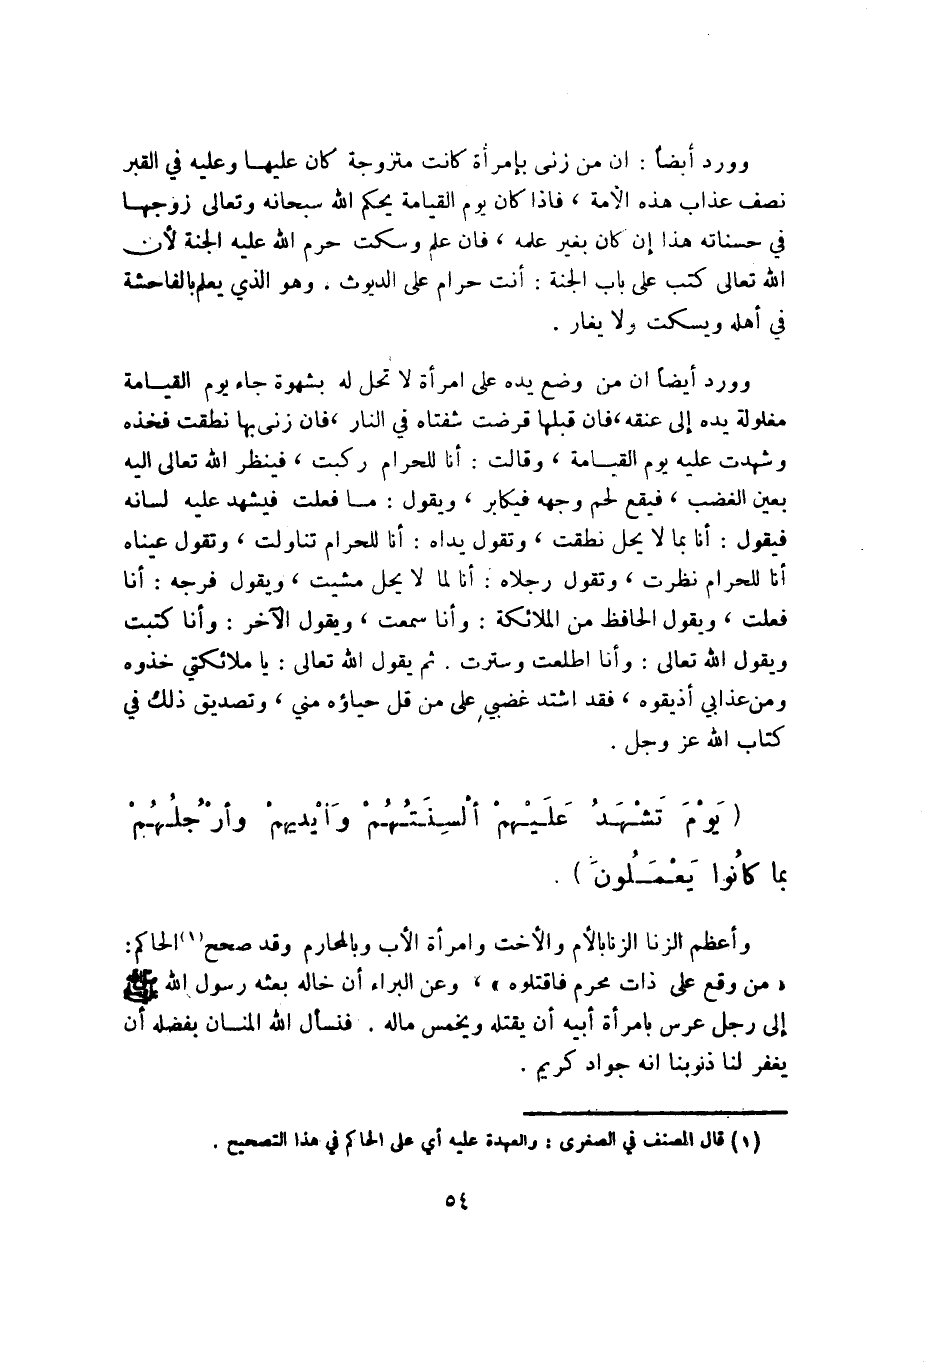 وورد أيضاً : ان من زنى بإمرأة كانت متزوجة كان عليها وعليه في القبر
نصف عذاب هذه الأمة ، فاذا كان يوم القيامة يحكم الله سبحانه وتعالى زوجها
في حسناته هذا إن كان بغير علمه ، فان علم وسكت حرم الله عليه الجنة لأن
الله تعالى كتب على باب الجنة : أنت حرام على الديوث . وهو الذي يعلم بالفاحشة
في أهله ويسكت ولا يغار .
وورد أيضاً ان من وضع يده على امرأة لا تحل له بشهوة جاء يوم القيامة
مغلولة يده إلى عنقه ، فان قبلها قرضت شفتاه في النار ، فان زنى بها نطقت فخذه
وشهدت عليه يوم القيامة ، وقالت : أنا للحرام ركبت ، فينظر الله تعالى اليه
بعين الغضب ، فيقع لحم وجهه فيكابر ، ويقول : ما فعلت فيشهد عليه لسانه
فيقول : أنا بما لا يحل نطقت ، وتقول يداه : أنا للحرام تناولت ، وتقول عيناه
أنا للحرام نظرت ، وتقول رجلاه : أنا لما لا يحل مشيت ، ويقول فرجه : أنا
فعلت ، ويقول الحافظ من الملائكة : وأنا سمعت ، ويقول الآخر : وأنا كتبت
ويقول الله تعالى : وأنا اطلعت وسترت . ثم يقول الله تعالى : يا ملائكتي خذوه
ومن عذابي أذيقوه ، فقد اشتد غضبي على من قل حياؤه مني ، وتصديق ذلك في
كتاب الله عز وجل .
( يَوْمَ تَشْهَدُ عَلَيْهِمْ ألْسِنَتُهُمْ وَأيْديهِمْ وأرْجلُهُمْ
بما كانُوا يَعْمَلُونَ ) .
وأعظم الزنا الزنا بالأم والأخت وامرأة الأب وبالمحارم وقد صحح (١) الحاكم :
« من وقع على ذات محرم فاقتلوه » ، وعن البراء أن خاله بعثه رسول الله ﷺ
إلى رجل عرس بامرأة أبيه أن يقتله ويخمس ماله . فنسأل الله المنان بفضله أن
يغفر لنا ذنوبنا انه جواد كريم .
(١) قال المصنف في الصغرى : والعهدة عليه أي على الحاكم في هذا التصحيح .
٥٤